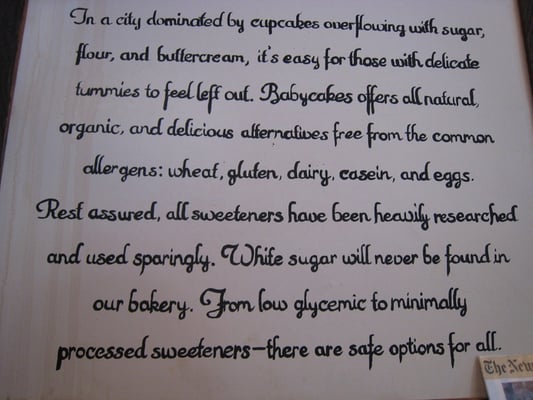 In a city dominated by cupcakes overflowing with sugar,
flour, and buttercream, it's easy for those with delicate
tummies to feel left out. Babycakes offers all natural,
organic, and delicious alternatives free from the common
allergens: wheat, gluten, dairy, casein, and eggs.
Rest assured, all sweeteners have been heavily researched
and used sparingly. White sugar will never be found in
our bakery. From low glycemic to minimally
processed sweeteners—there are safe options for all.
The New